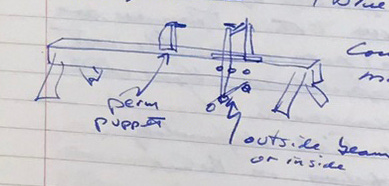 Blue
perm
puppet
outside beam
or inside